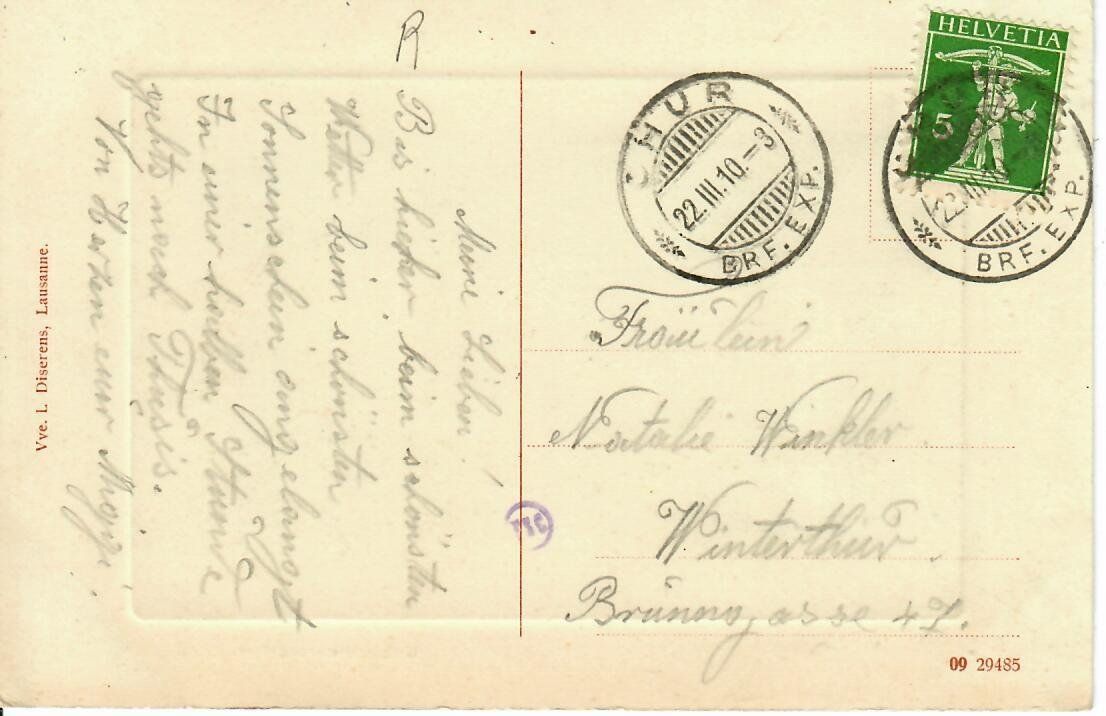 Meine Lieben!
Bis hieher beim schönsten
Wetter beim schönsten
Sonnenschein angelangt
In einer halben Stunde
gehts nach Thusis.
Von Herzen euer
HELVETIA
5
CHUR
22.III.10.-3
BRF. EXP.
22.III.10
BRF. EXP.
Fräulein
Natalie Winkler
Winterthur
Brunngasse 47.
Vve. L. Diserens, Lausanne.
09 29485